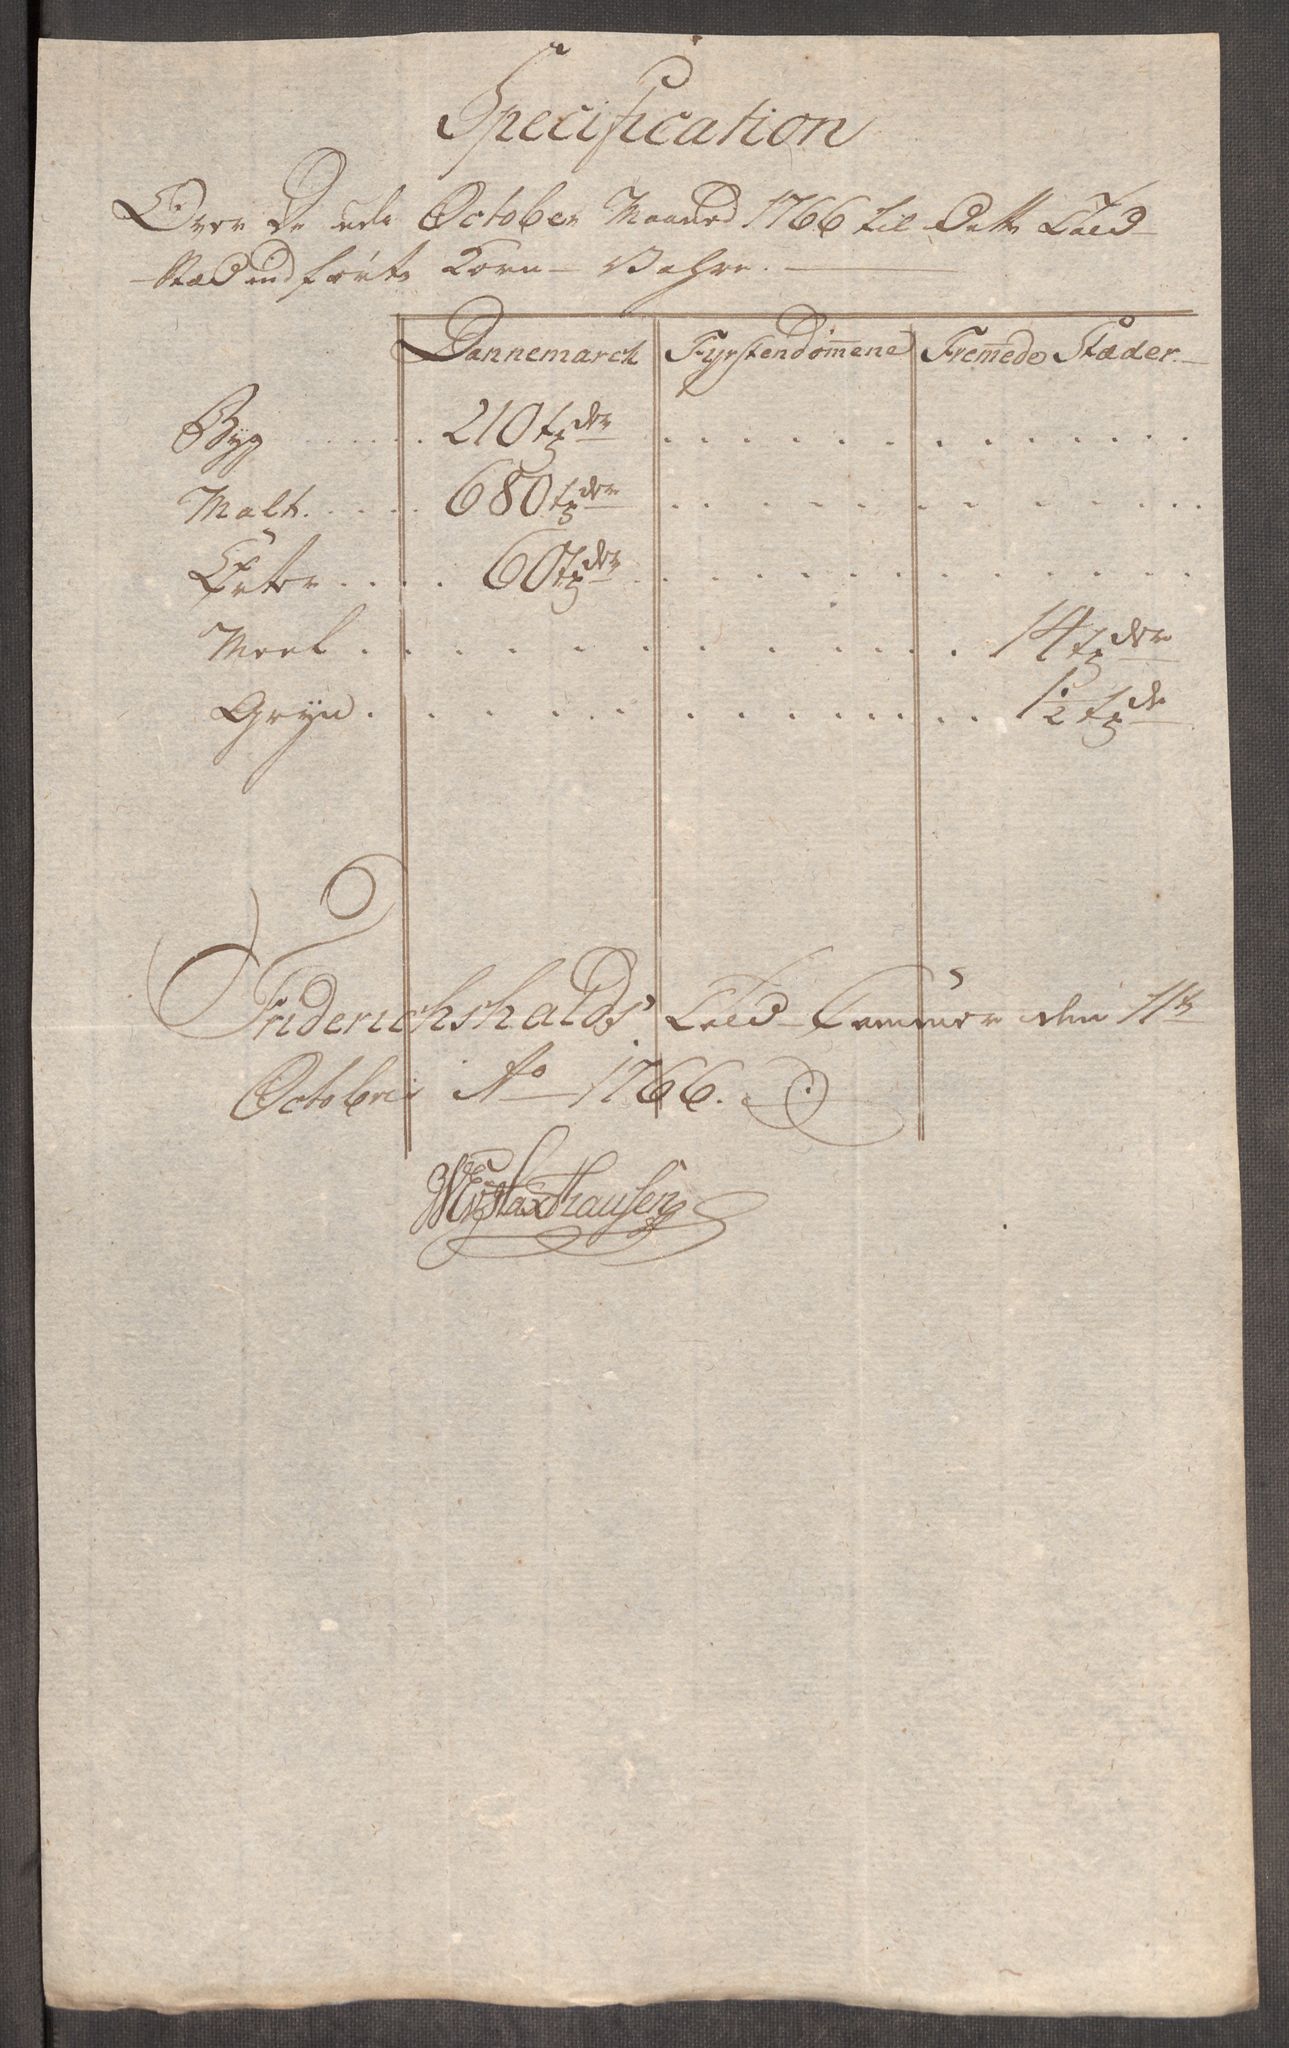 Specification
Over De udi October Maaned 1766 til Dette Told
Stæd ind førte Korn- Vahre.
Dannemarck Fyrstendom̅ene Frem̅ede Stæder
Byg ..... 210 tder
Malt ..... 680 tder
Erter .... 60 tder
Meel ............ 14 tder
Gryn ............ 1/2 tde
Friderichshalds Told-Cammer den
Octobris Ao 1766.